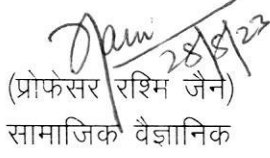 Jain
28/8/23
(प्रोफेसर रश्मि जैन)
सामाजिक वैज्ञानिक